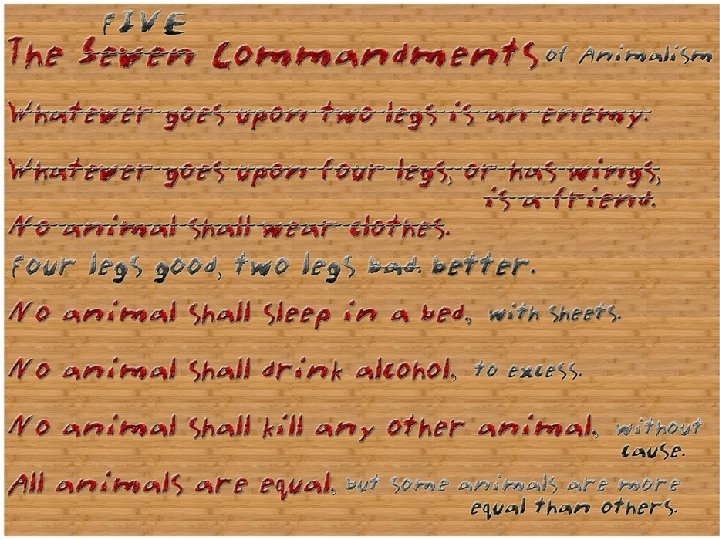 FIVE
The Seven Commandments of Animalism
Whatever goes upon two legs is an enemy.
Whatever goes upon four legs, or has wings,
is a friend.
No animal shall wear clothes.
Four legs good, two legs bad. better.
No animal shall sleep in a bed, with sheets.
No animal shall drink alcohol, to excess.
No animal shall kill any other animal, without
cause.
All animals are equal, but some animals are more
equal than others.